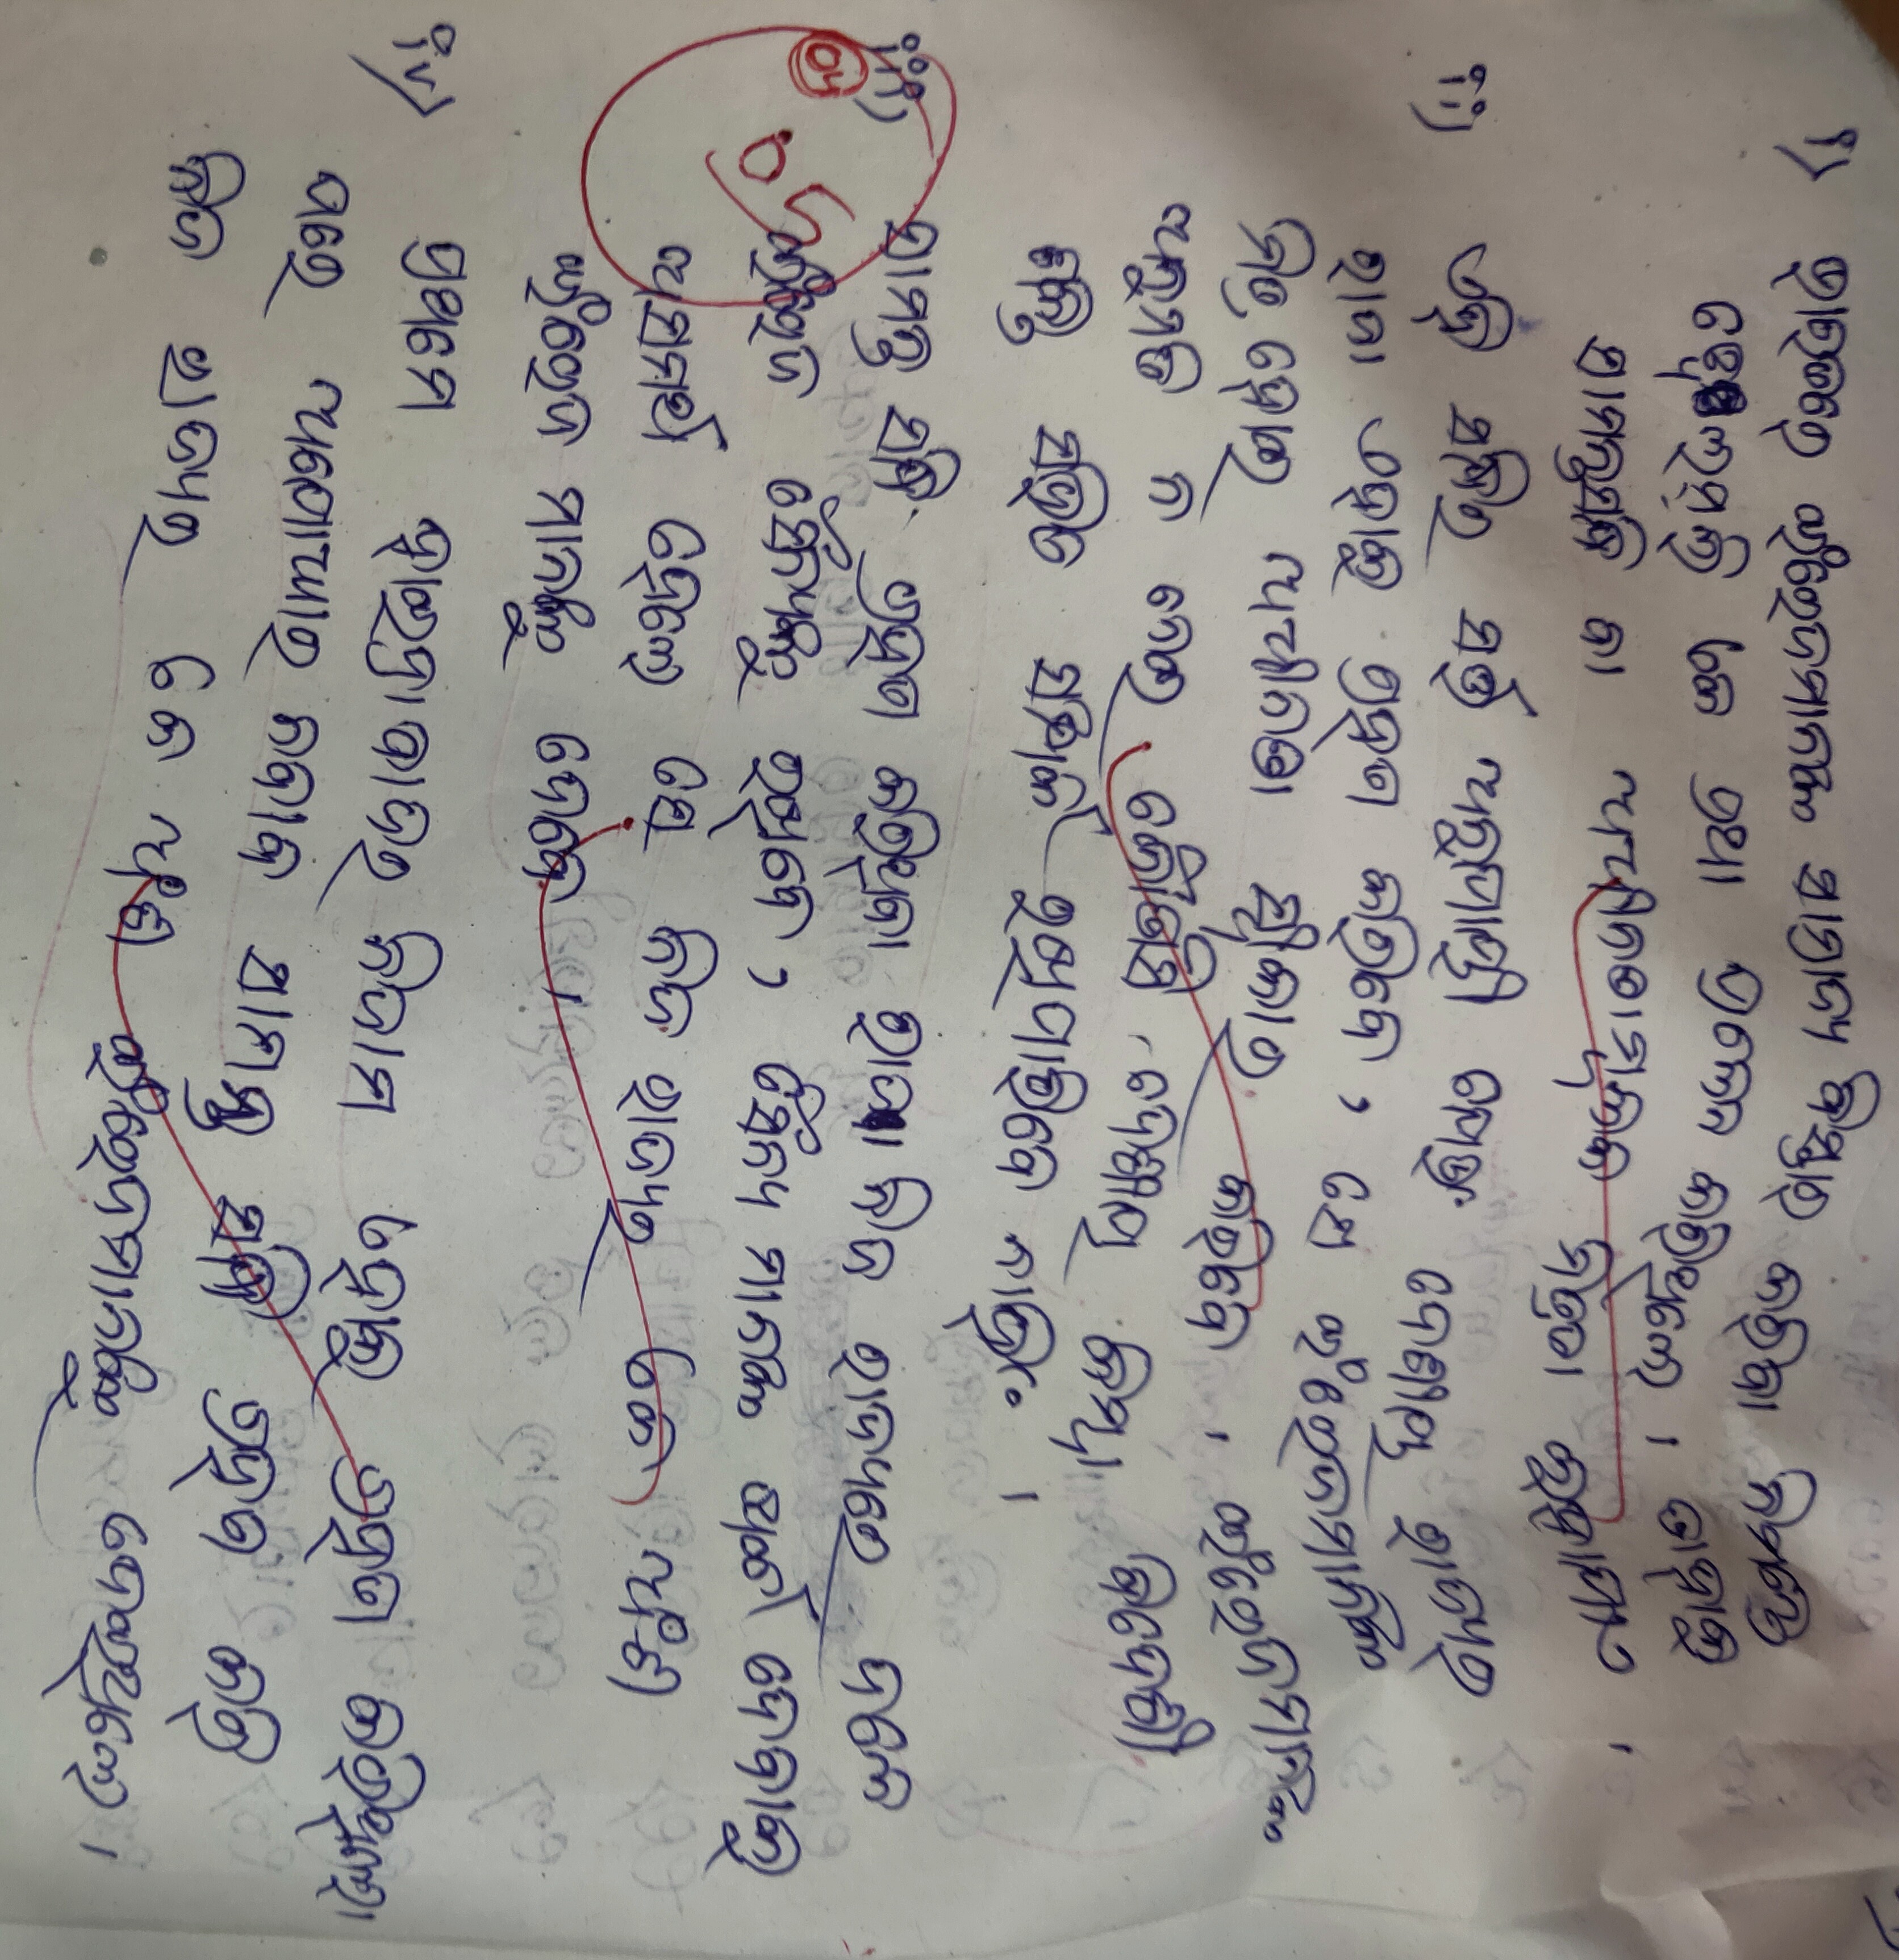 i) ଭାରତରେ ଇଂରେଜମାନଙ୍କ ସାମ୍ରାଜ୍ୟ ବିସ୍ତାର କରିବା ନିମନ୍ତେ
ୱେଲେସ୍‌ଲି ଏକ ପ୍ରଥା ପ୍ରଚଳନ କରିଥିଲେ । ତାହାକୁ
ସାମନ୍ତସନ୍ଧି ବା ଅଧୀନତାମୂଳକ ମିତ୍ରତା କୁହାଯାଏ ।
ii) ଏହି ସନ୍ଧିର ସର୍ତ୍ତ ଅନୁଯାୟୀ ଯେଉଁ ଦେଶୀୟ ରାଜ୍ୟର
ରାଜା ଏହାକୁ ଗ୍ରହଣ କରିବେ , ସେ ଇଂରେଜମାନଙ୍କ
ମିତ୍ର ହୋଇ ଅଧୀନତା ସ୍ୱୀକାର କରିବେ । ଇଂରେଜମାନଙ୍କ
ଅନୁମତି ନ ନେଇ କୌଣସି ଦେଶୀୟ କିମ୍ବା ବିଦେଶୀ
ଶକ୍ତି ସହିତ ସମ୍ପର୍କ ରଖିପାରିବେ ନାହିଁ ।
iii) ସାମନ୍ତ ସନ୍ଧି ଗ୍ରହଣ କରିଥିବା ରାଜା ନିଜ ରାଜ୍ୟରେ ଦଳେ
ଇଂରେଜ ସୈନ୍ୟଙ୍କୁ ରଖିବେ , ସୈନ୍ୟ ମାନଙ୍କ ଖର୍ଚ୍ଚ ଦେବାକୁ
04
05
ଅସମର୍ଥ ହେଲେ ସେ ନିଜ ରାଜ୍ୟର ଏକ ଅଂଶ
ଇଂରେଜ ମାନଙ୍କୁ ଦେବେ ।
iv) ପ୍ରଥମେ ହାଇଦ୍ରାବାଦର ନିଜାମ ଏହାକୁ ଗ୍ରହଣ କରିଥିଲେ।
ପରେ ଅଯୋଧ୍ୟାର ନବାବ ସାମନ୍ତ ସନ୍ଧି ଗ୍ରହଣ କରି
ନିଜ ରାଜ୍ୟର ଏକ ଅଂଶ ଇଂରେଜମାନଙ୍କୁ ଦେଇଥିଲେ ।